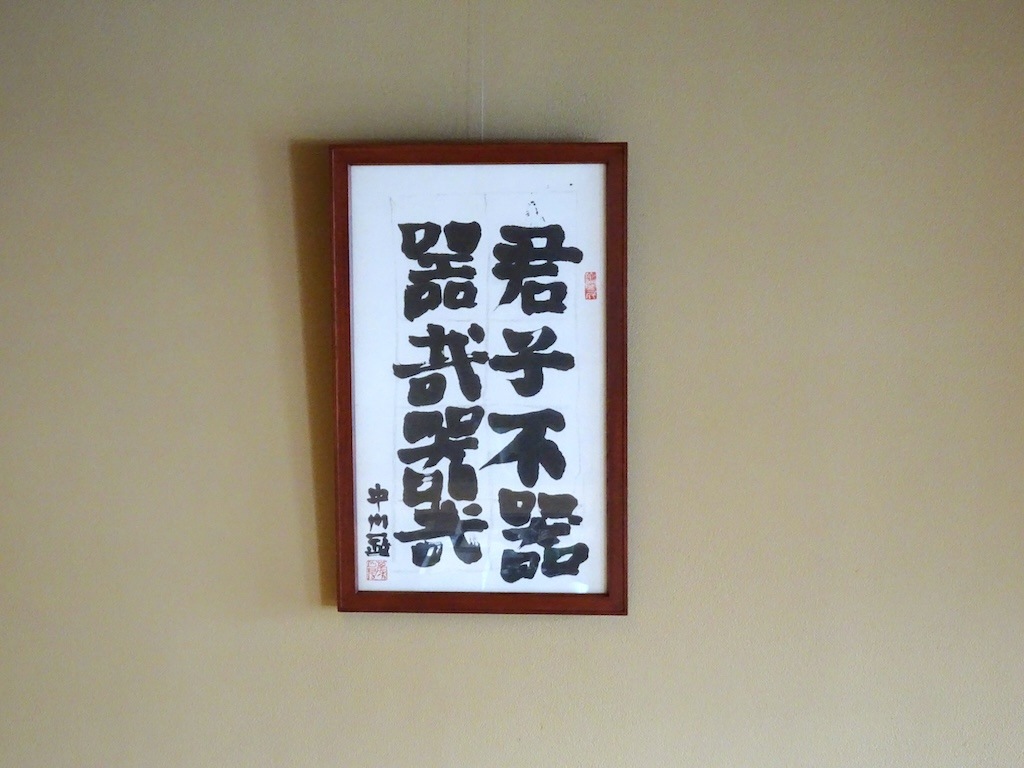 君子不器
器哉器哉
中山